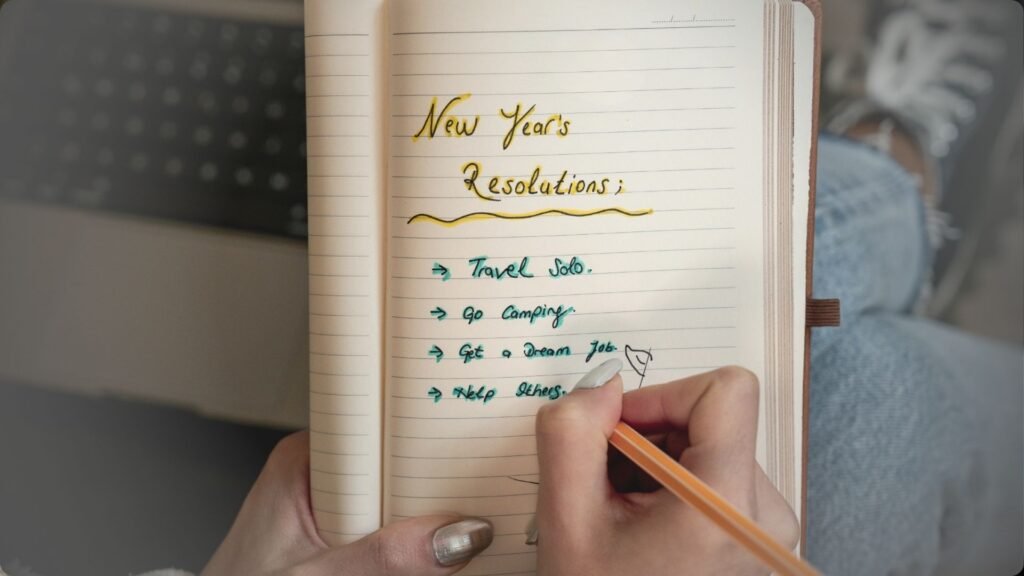 New Year's
Resolutions;
→ Travel Solo.
→ Go Camping.
→ Get a Dream Job.
→ Help Others.